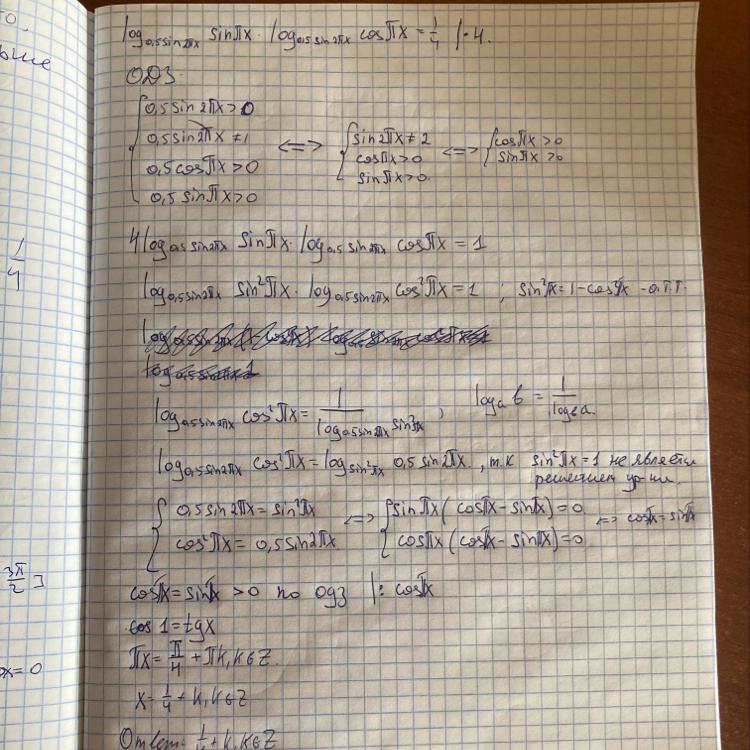 log₀,₅sin2πx sinπx · log₀,₅sin2πx cosπx = 1/4 | · 4.
ОДЗ:
0,5sin2πx > 0
0,5sin2πx ≠ 1
0,5cosπx > 0
0,5sinπx > 0
<=>
sin2πx ≠ 2
cosπx > 0
sinπx > 0.
<=>
cosπx > 0
sinπx > 0
4 log₀,₅sin2πx sinπx · log₀,₅sin2πx cosπx = 1
log₀,₅sin2πx sin²πx · log₀,₅sin2πx cos²πx = 1 ; sin²πx = 1 - cos²πx - о.т.т.
log₀,₅sin2πx cos²πx = 1/log₀,₅sin2πx sin²πx ; logₐ b = 1/log_b a.
log₀,₅sin2πx cos²πx = log_sin²πx 0,5sin2πx , т.к sin²πx = 1 не является
решением ур-ния.
0,5sin2πx = sin²πx
cos²πx = 0,5sin2πx
<=>
sinπx(cosπx - sinπx) = 0
cosπx(cosπx - sinπx) = 0
<=> cosπx = sinπx
cosπx = sinπx > 0 по одз | : cosπx
1 = tgx
πx = π/4 + πk, k∈Z.
x = 1/4 + k, k∈Z
Ответ: 1/4 + k, k∈Z
1/4
3π/2 ]
x = 0